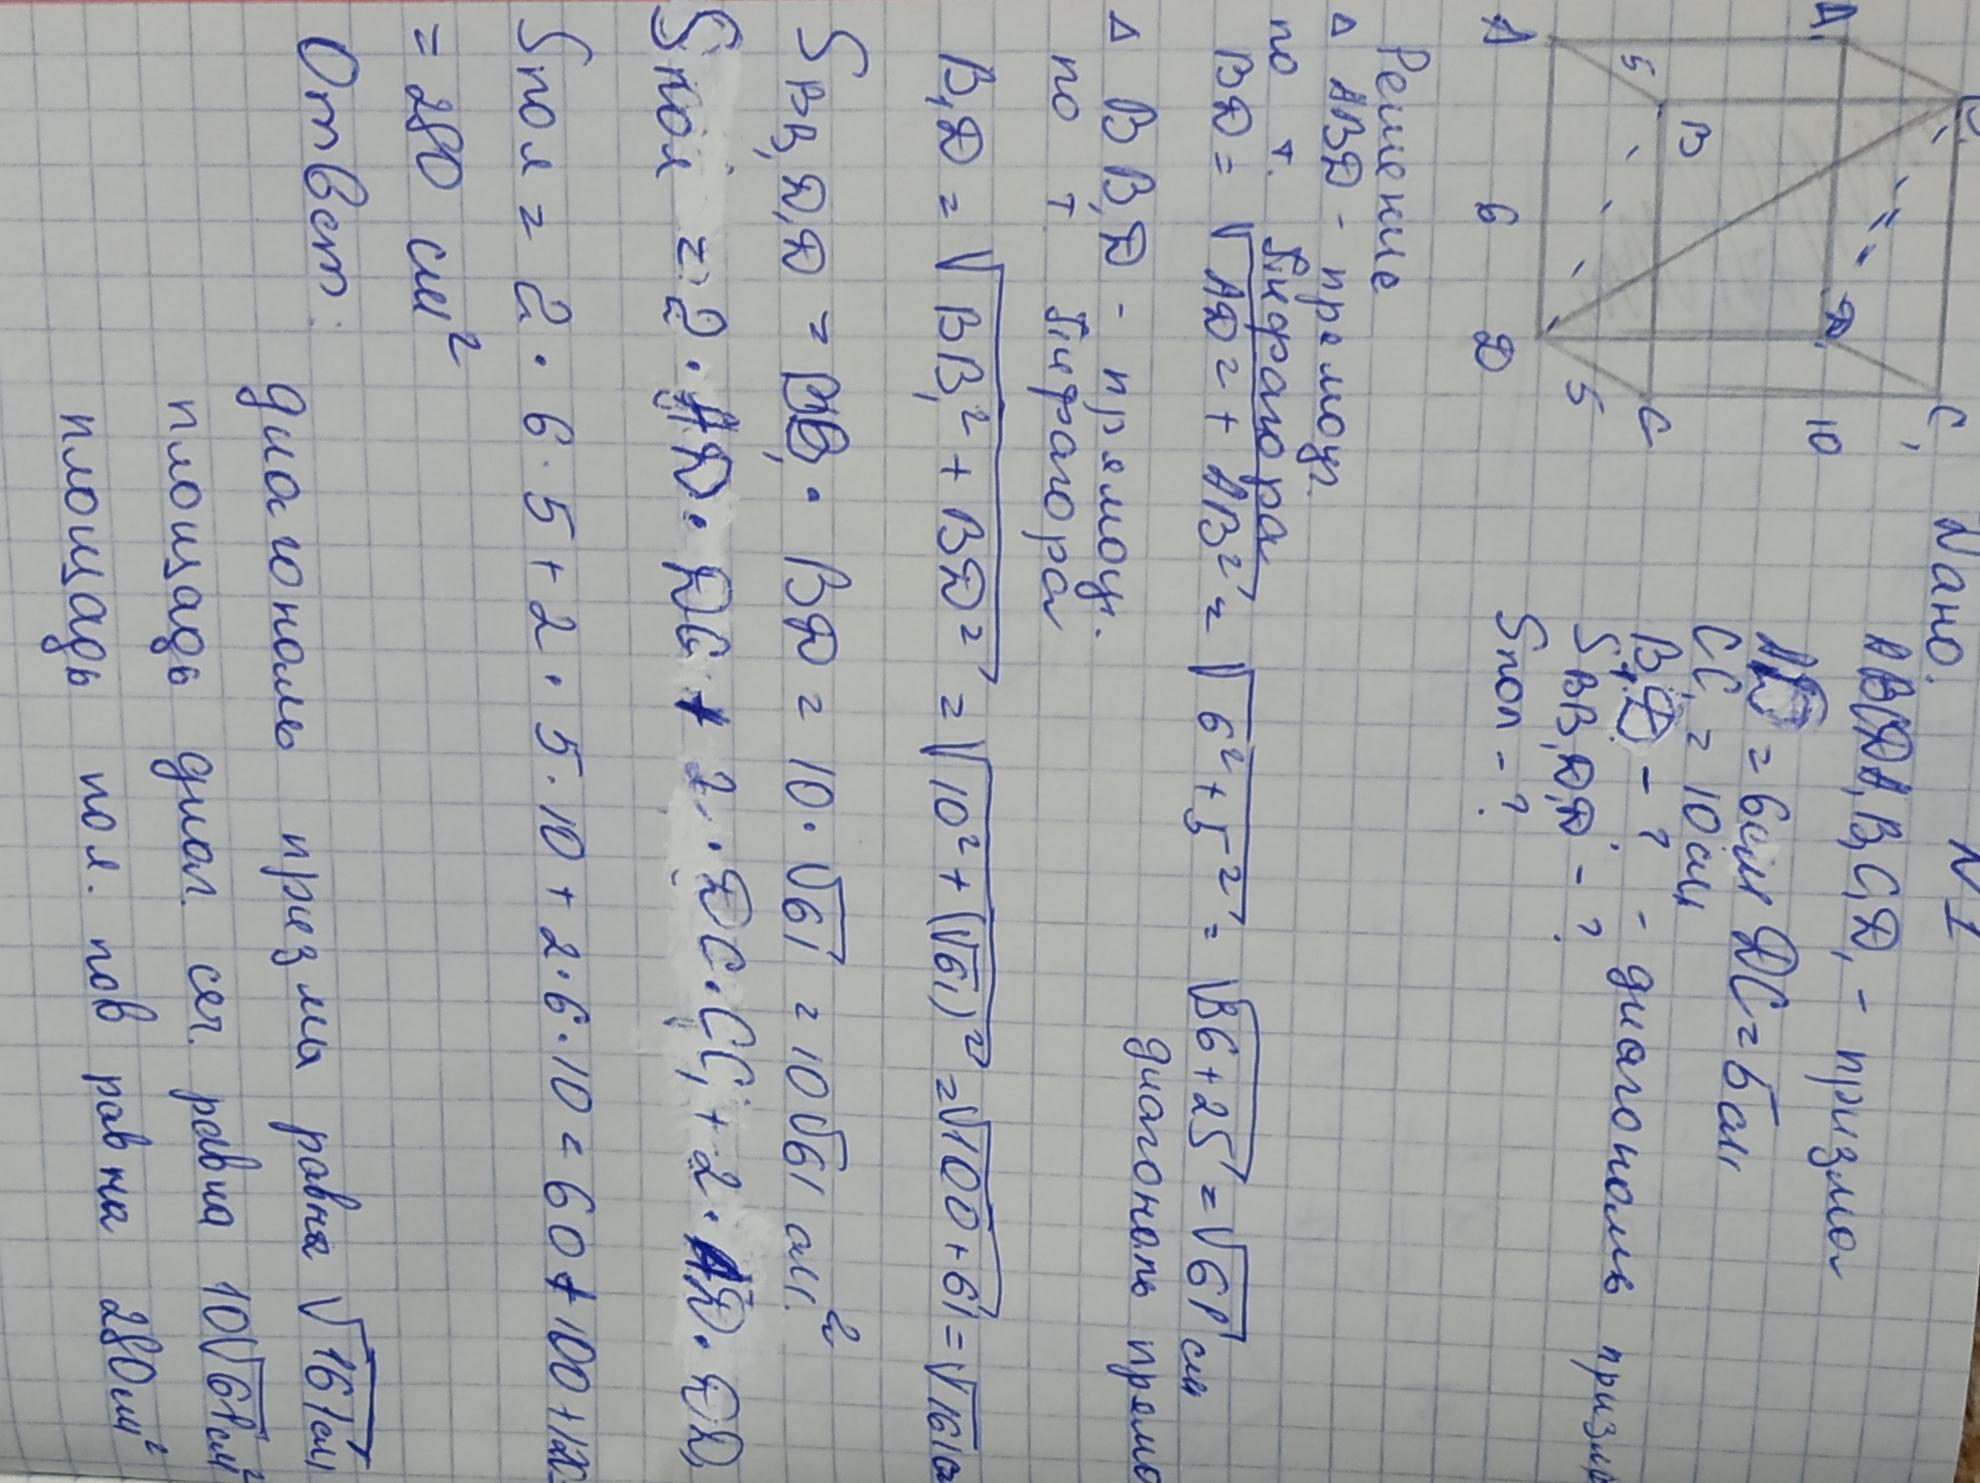 N 1
Дано.
ABCDA₁B₁C₁D₁ - призма
= 6см DC = 5см
CC₁ = 10см
B₁D - ? - диагональ призмы
S BB₁D₁D - ?
Sпол - ?
A₁ B₁ C₁ D₁
A B C D
5 6 5 10
Решение
∆ ABD - прямоуг.
по т. Пифагора
BD = √AD² + AB² = √6² + 5² = √36 + 25 = √61 см
∆ BB₁D - прямоуг.
по т Пифагора
диагональ призмы
B₁D = √BB₁² + BD² = √10² + (√61)² = √100 + 61 = √161 см
S BB₁D₁D = BB₁ · BD = 10 · √61 = 10√61 см²
Sпол = 2 · AD · DC + 2 · DC · CC₁ + 2 · AD · DD₁
Sпол = 2 · 6 · 5 + 2 · 5 · 10 + 2 · 6 · 10 = 60 + 100 + 120
= 280 см²
Ответ:
диагональ призмы равна √161 см
площадь диаг. сеч. равна 10√61 см²
площадь пол. пов равна 280 см²